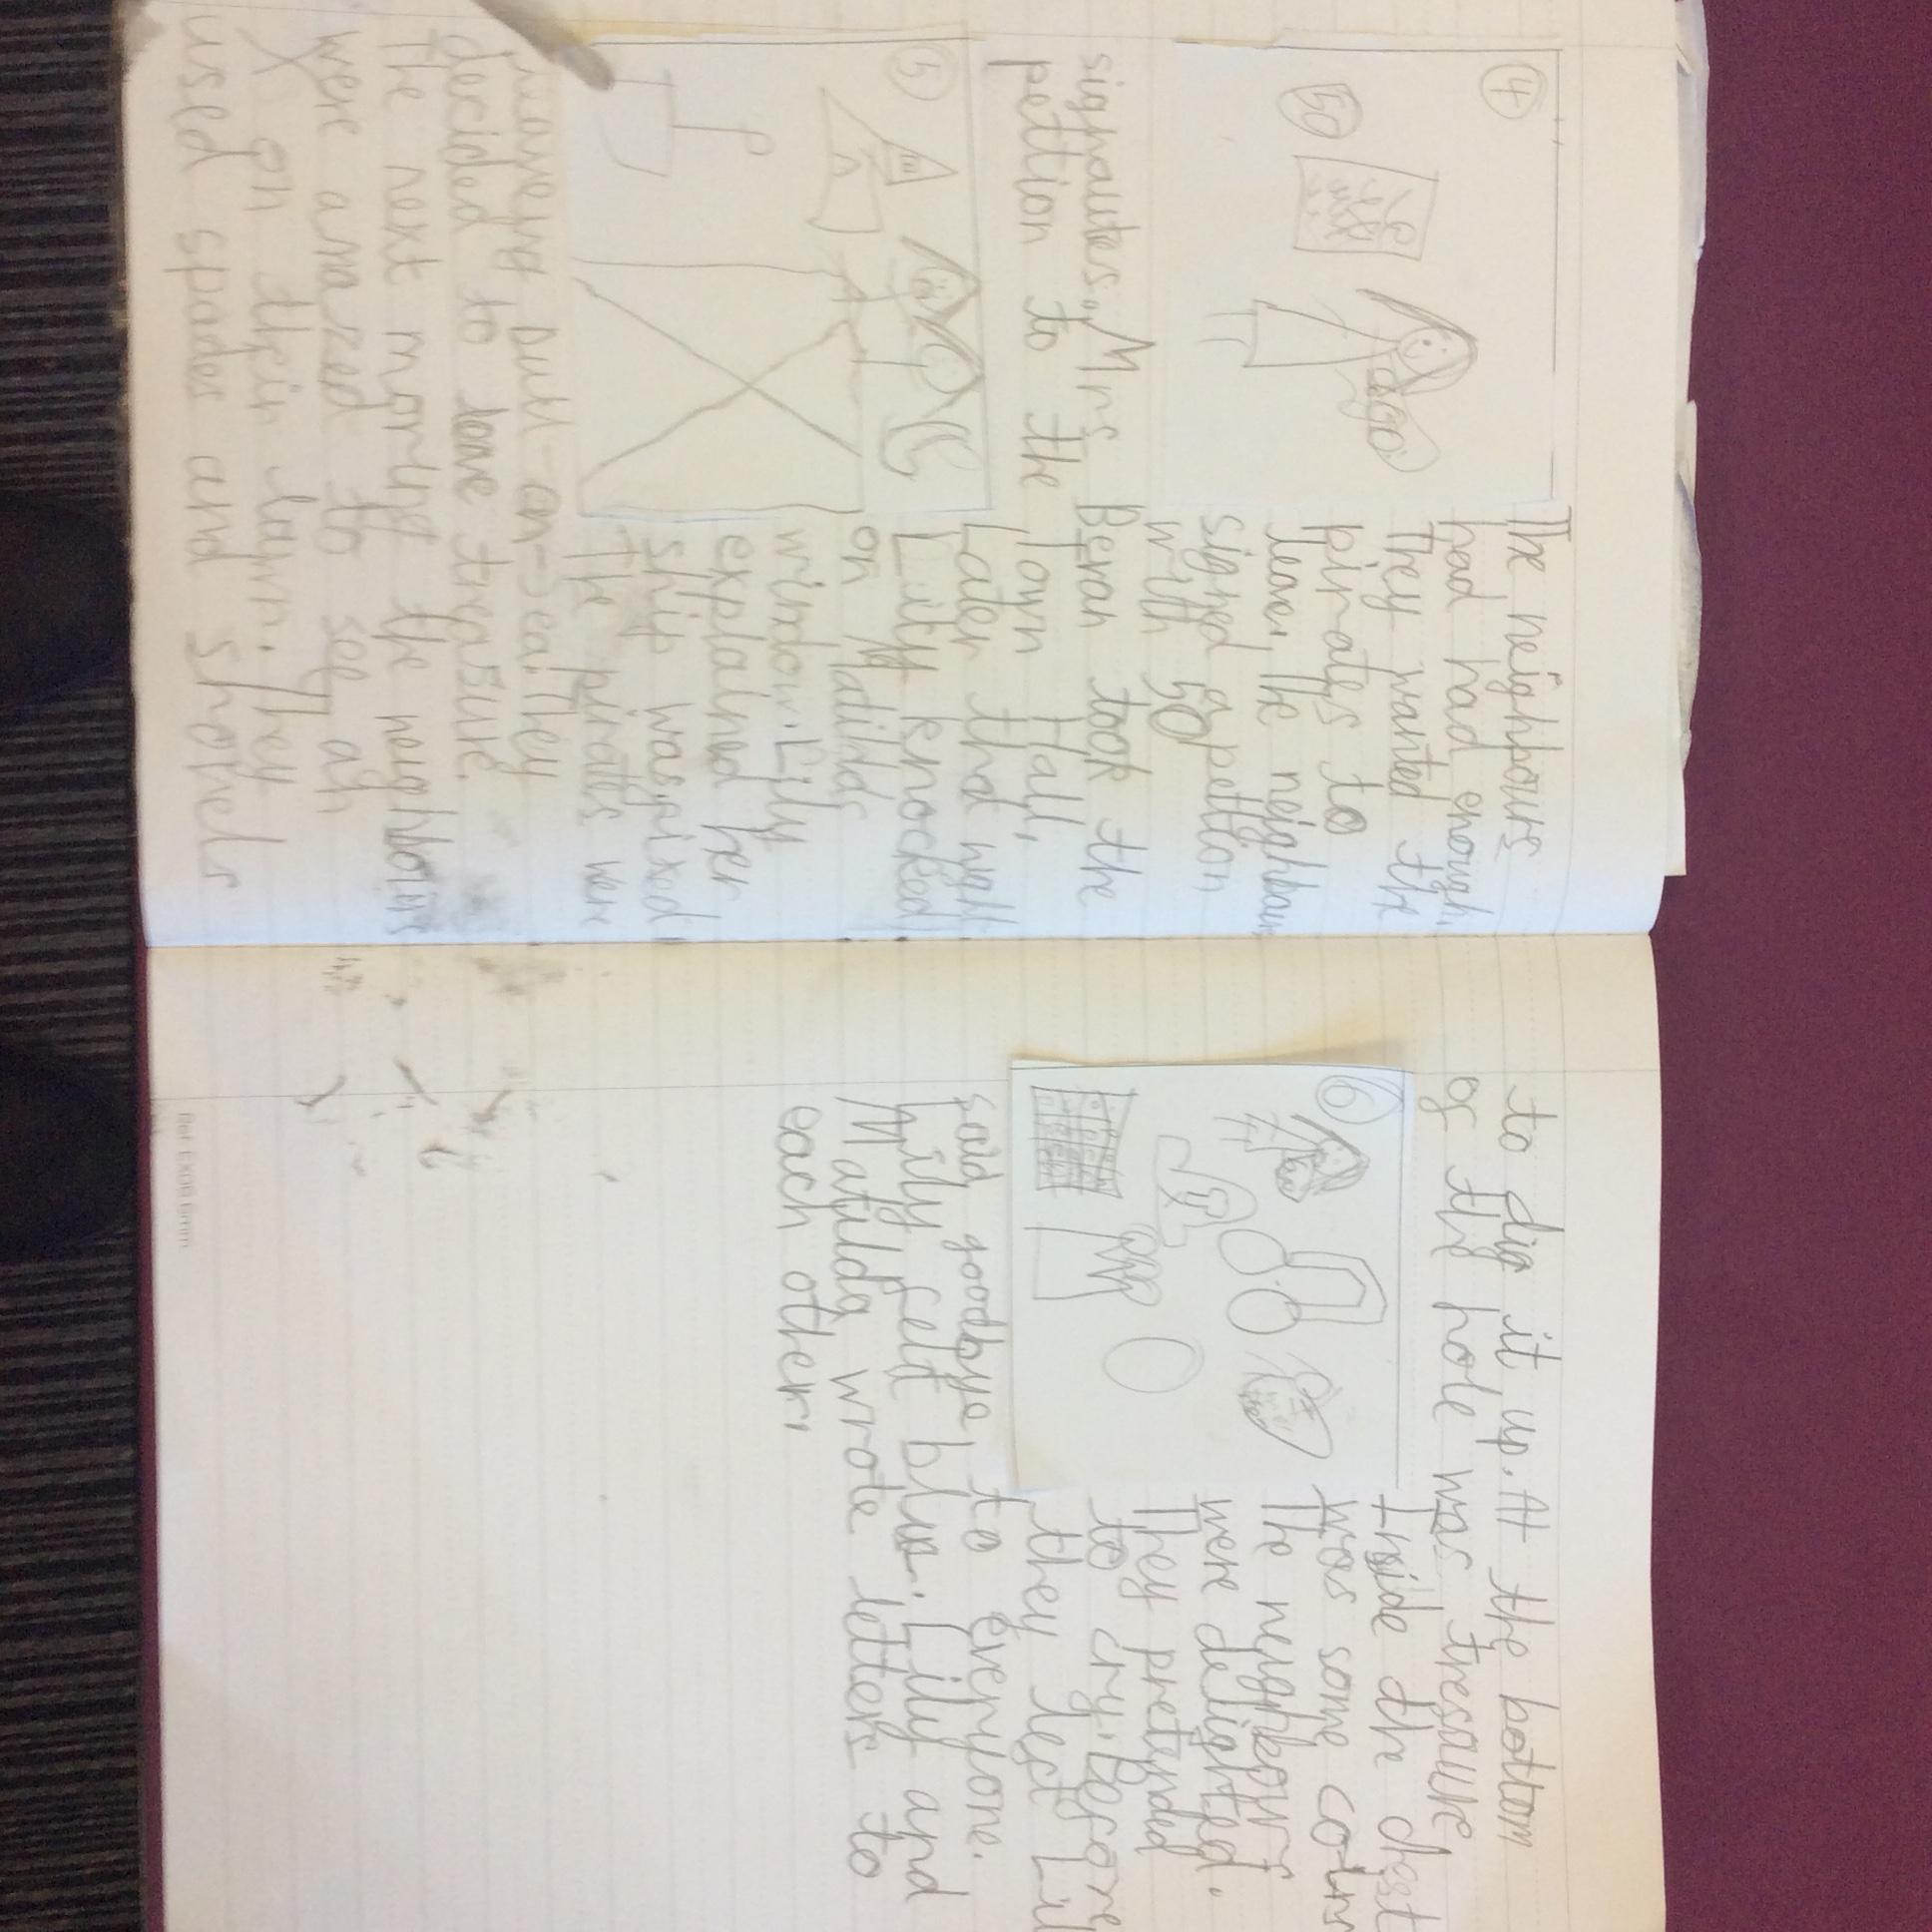 ④
50
The neighbours
had had enough.
They wanted the
pirates to
leave, The neighbours
signed a petton
with 50
signautes, Mrs Bevan took the
pettion to the Town Hall,
⑤
Later that night
Lily knocked
on Matilda's
window. Lily
explained her
ship was fixed,
The pirates were
having pull-on-sea. They
decided to leave treasure.
The next morning the neighbours
were amazed to see an
X on their lawn. They
used spades and shovels
to dig it up. At the bottom
of the hole was tresaure,
⑥
Inside the chest
was some coins
The neighbours
were delighted.
They pretended
to cry. Before
they left Lily
said goodbye to everyone.
Milly felt blue. Lily and
Matilda wrote letters to
each other.
Ref EX08 6mm